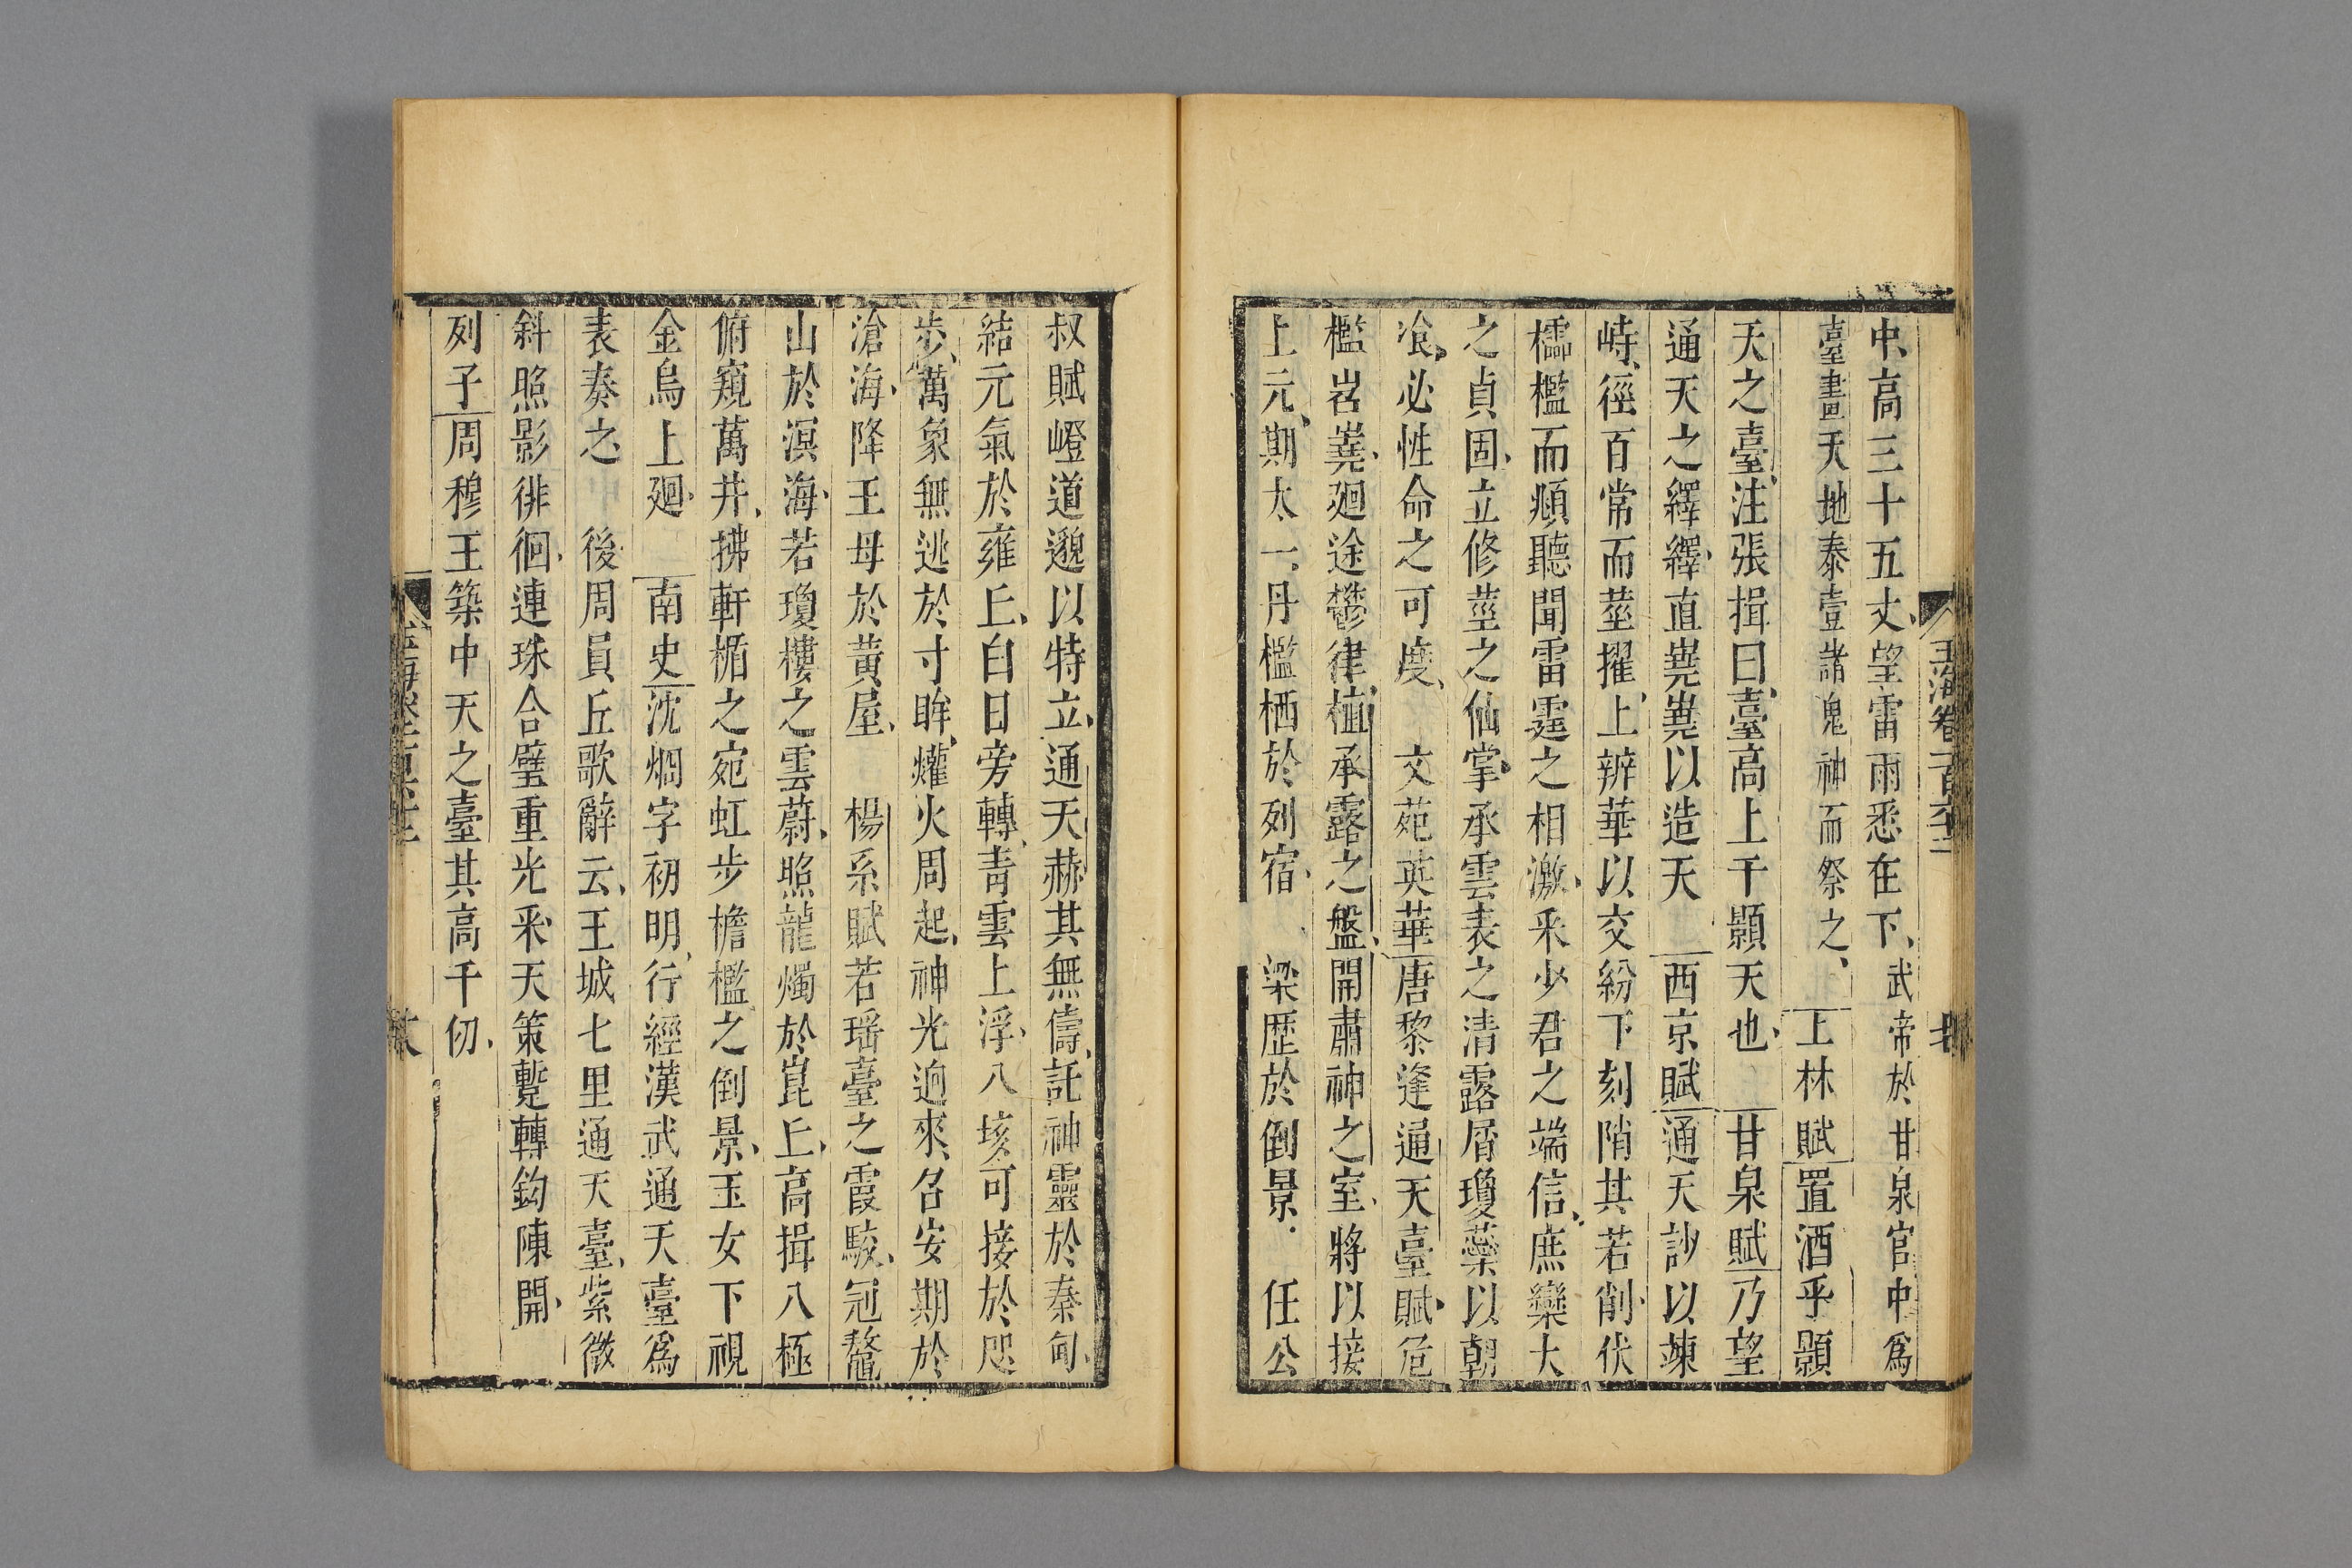 玉海卷一百六十二
中高三十五丈望雷雨悉在下武帝於甘泉宮中爲
臺畫天地泰壹諸鬼神而祭之 上林賦置酒乎顥
天之臺注張揖曰臺高上千顥天也 甘泉賦乃望
通天之繹繹直嶤嶤以造天 西京賦通天訬以竦
峙徑百常而莖擢上辨華以交紛下刻陗其若削伏
櫺檻而頫聽聞雷霆之相激采少君之端信庶欒大
之貞固立修莖之仙掌承雲表之清露屑瓊蘂以朝
飡必性命之可度 文苑英華唐黎逢通天臺賦危
檻岧嶤廻途鬱律植承露之盤開肅神之室將以接
上元期太一丹檻栖於列宿 梁歷於倒景 任公
叔賦嶝道邈以特立通天赫其無儔託神靈於秦甸
結元氣於雍丘白日旁轉青雲上浮八垓可接於咫
步萬象無逃於寸眸爟火周起神光迥來召安期於
滄海降王母於黃屋 楊系賦若瑶臺之霞駮冠鼇
山於溟海若瓊樓之雲蔚照龍燭於崑丘高揖八極
俯窺萬井拂軒楯之宛虹步檐檻之倒景玉女下視
金烏上廻 南史沈烱字初明行經漢武通天臺爲
表奏之 後周員丘歌辭云王城七里通天臺紫微
斜照影徘徊連珠合璧重光釆天策蹔轉鈎陳開
列子周穆王築中天之臺其高千仞